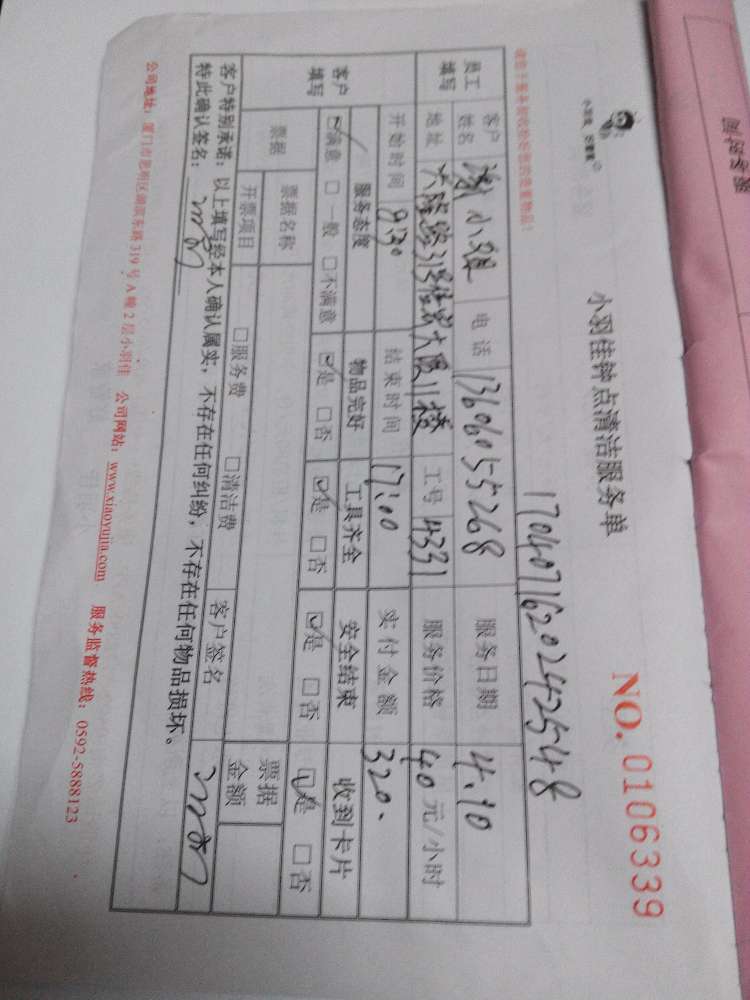 小羽佳 好慷家
小羽佳钟点清洁服务单
NO. 0106339
1704071620242548
员工填写
客户姓名 谢小姐 电话 13606055268 服务日期 4.10
地址 31号佳家大厦11楼 工号 4331 服务价格 40 元/小时
客户填写
开始时间 9:30 结束时间 17:00 实付金额 320.
服务态度 物品完好 工具齐全 安全结束 收到卡片
☑满意 □一般 □不满意 ☑是 □否 ☑是 □否 ☑是 □否 ☑是 □否
票据 票据名称 票据金额
开票项目 □服务费 □清洁费 客户签名
客户特别承诺：以上填写经本人确认属实，不存在任何纠纷，不存在任何物品损坏。
特此确认签名：
公司地址：厦门市思明区湖滨东路 319 号 A 幢 2 层小羽佳 公司网站：www.xiaoyujia.com 服务监督热线：0592-5888123